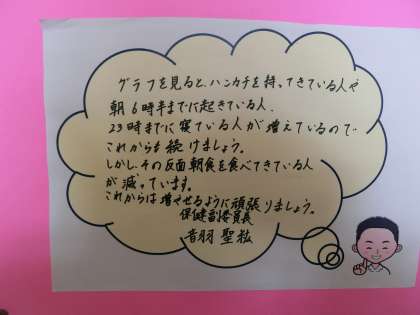 グラフを見ると、ハンカチを持ってきている人や
朝6時半までに起きている人、
23時までに寝ている人が増えているので
これからも続けましょう。
しかし、その反面朝食を食べてきている人
が減っています。
これからは増やせるように頑張りましょう。
保健副委員長
音羽 聖紘